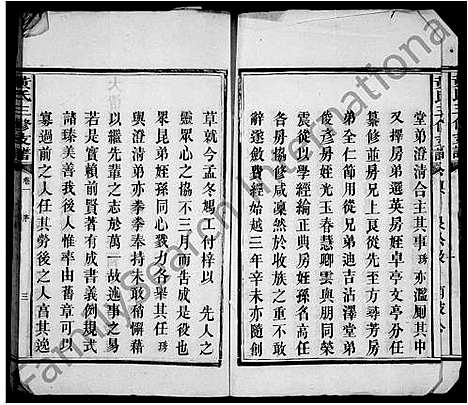 堂弟澄清合主其事琇亦濫厠其中
又擇房弟選英房姪卓亭文亭分任
纂修並房兄上貞從先王方尋芳房
弟全仁節用從弟迪吉沾澤堂弟
俊彦房姪光玉春慧卿雲與朋同榮
高從以學經綸正典房姪孫同德
各房協修咸凜然於收族之重不敢
辭爰創始越三年辛未亦云隨
草就今孟冬媽付梓以先人之
靈眾心之協不三月而告成是役也
眾昆弟姪孫同心戮力各舉其任琇
與澄清弟亦拳拳奉持不敢稍懈藉
以繼先輩之志於萬一故事之易
若是實賴前賢著有成書義例規式
諸臻美善我後人惟率由舊章可以
纂過前之人任其勞後之人享其逸
黃氏三修支譜
卷一
序
三
FamilySearch International